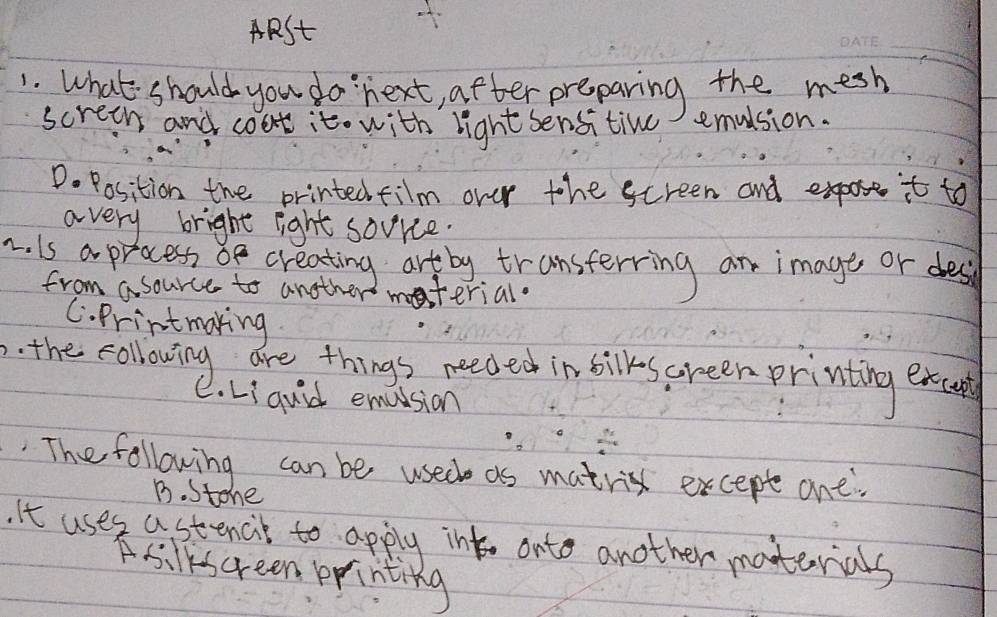 ARSt
DATE
1. What should you do next, after preparing the mesh
screen and coat it. with light sensitive emulsion.
D. Position the printed film over the screen and expose it to
a very bright light source.
2. Is a process of creating art by transferring an image or desi
from a source to another material.
C. Printmaking
the following are things needed in silkscreen printing except
C. Liquid emulsion
The following can be used as matrix except one.
B. Stone
It uses a stencil to apply ink onto another materials
A silkscreen printing